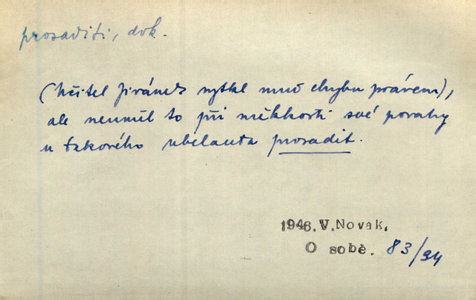 prosaditi, dok.
(Učitel Jiránek vytkl mně chybu právem),
ale neuměl to při měkkosti své povahy
u takového ubelanta prosadit.
1946. V. Novák,
O sobě. 83/94